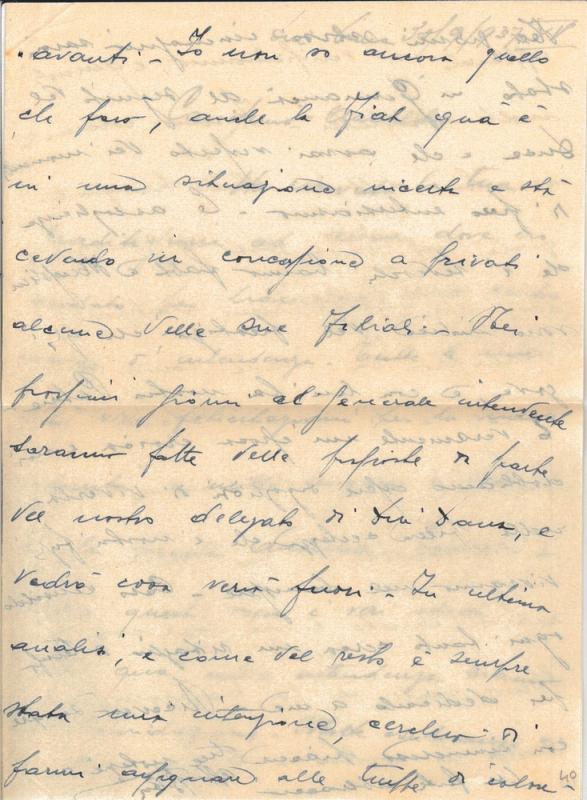 avanti - Io non so ancora quello
che farò, anche la Fiat quà è
in una situazione incerta e stà
cedendo in concessione a privati
alcune delle sue Filiali - Nei
prossimi giorni al Generale intendente
saranno fatte delle proposte di parte
del nostro delegato di Dire Daua, e
vedrò cosa verrà fuori - In ultima
analisi, e come del resto è sempre
stata mia intenzione, cercherò di
farmi assegnare alle truppe di colore -
40